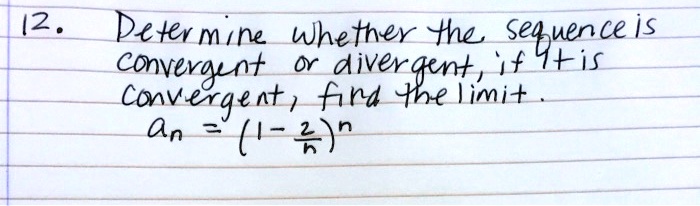 12. Determine whether the sequence is
convergent or divergent, if it is
convergent, find the limit.
an = (1 - 2/n)^n